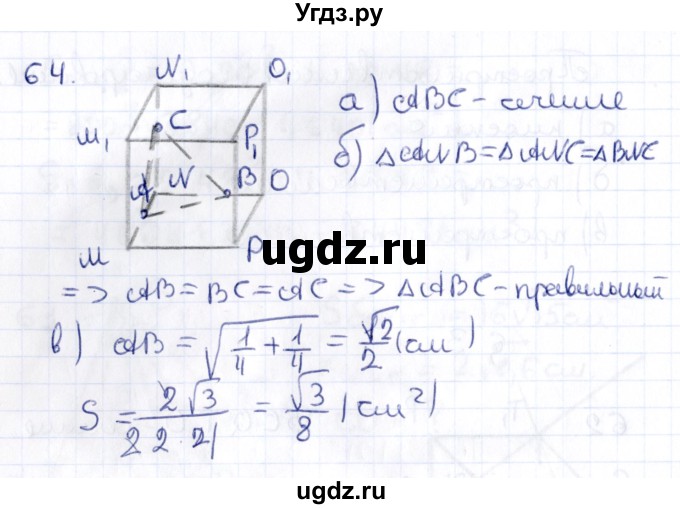 Угдз.ру
64.
N₁ O₁
C
M₁ P₁
A N B O
M P
а) ABC - сечение
б) △ANB = △ANC = △BNC
ugdz.ru
=> AB = BC = AC => △ABC - правильный
в) AB = √(1/4 + 1/4) = √2/2 (см)
S = 2√3/(2·2·2) = √3/8 (см²)
ugdz.ru